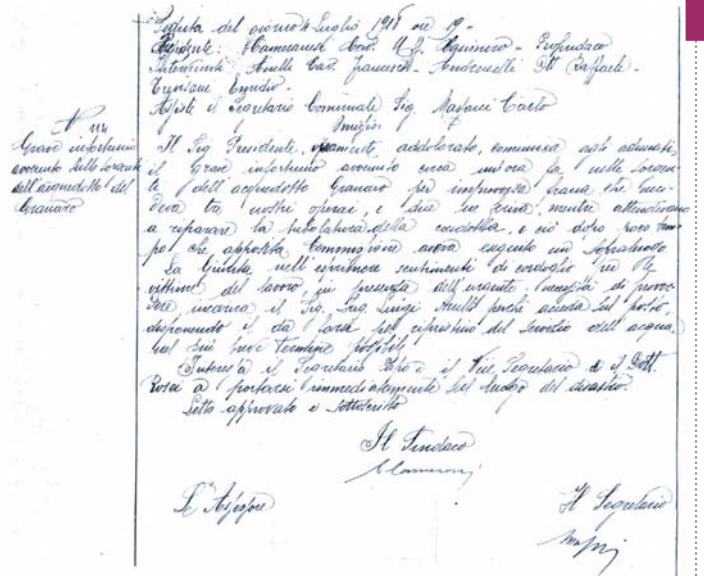 Seduta del giorno 4 Luglio 1918 ore 19 -
Presidente: Cav. - Prosindaco
Intervenuti - Anelli Cav. Francesco - Andreanelli Raffaele -
Emidio -
Assiste il Segretario Comunale Sig. Carlo
N 114
Grave infortunio
avvenuto sulle sorgenti
dell'acquedotto del
Granaro
Il Sig. Presidente, addolorato, comunica agli adunati,
il grave infortunio avvenuto circa un'ora fa nelle sorgen-
te dell'acquedotto Granaro per improvvisa frana che ucci-
deva tre nostri operai, e due ne feriva, mentre attendevano
a riparare la tubolatura della condotta, e ciò dopo poco tem-
po che apposita Commissione aveva eseguito un sopraluogo.
La Giunta nell'esprimere sentimenti di cordoglio per le
vittime del lavoro, in presenza dell'urgente necessità di provve-
dere incarica il Sig. Ing. Luigi Anelli perché acceda sul posto,
disponendo il da farsi pel ripristino del servizio dell'acqua,
nel più breve termine possibile.
Interessa il Segretario Capo e il Vice Segretario e il Dott.
Rosa a portarsi immediatamente sul luogo del disastro.
Letto approvato e sottoscritto
Il Sindaco
L'Assessore
Il Segretario